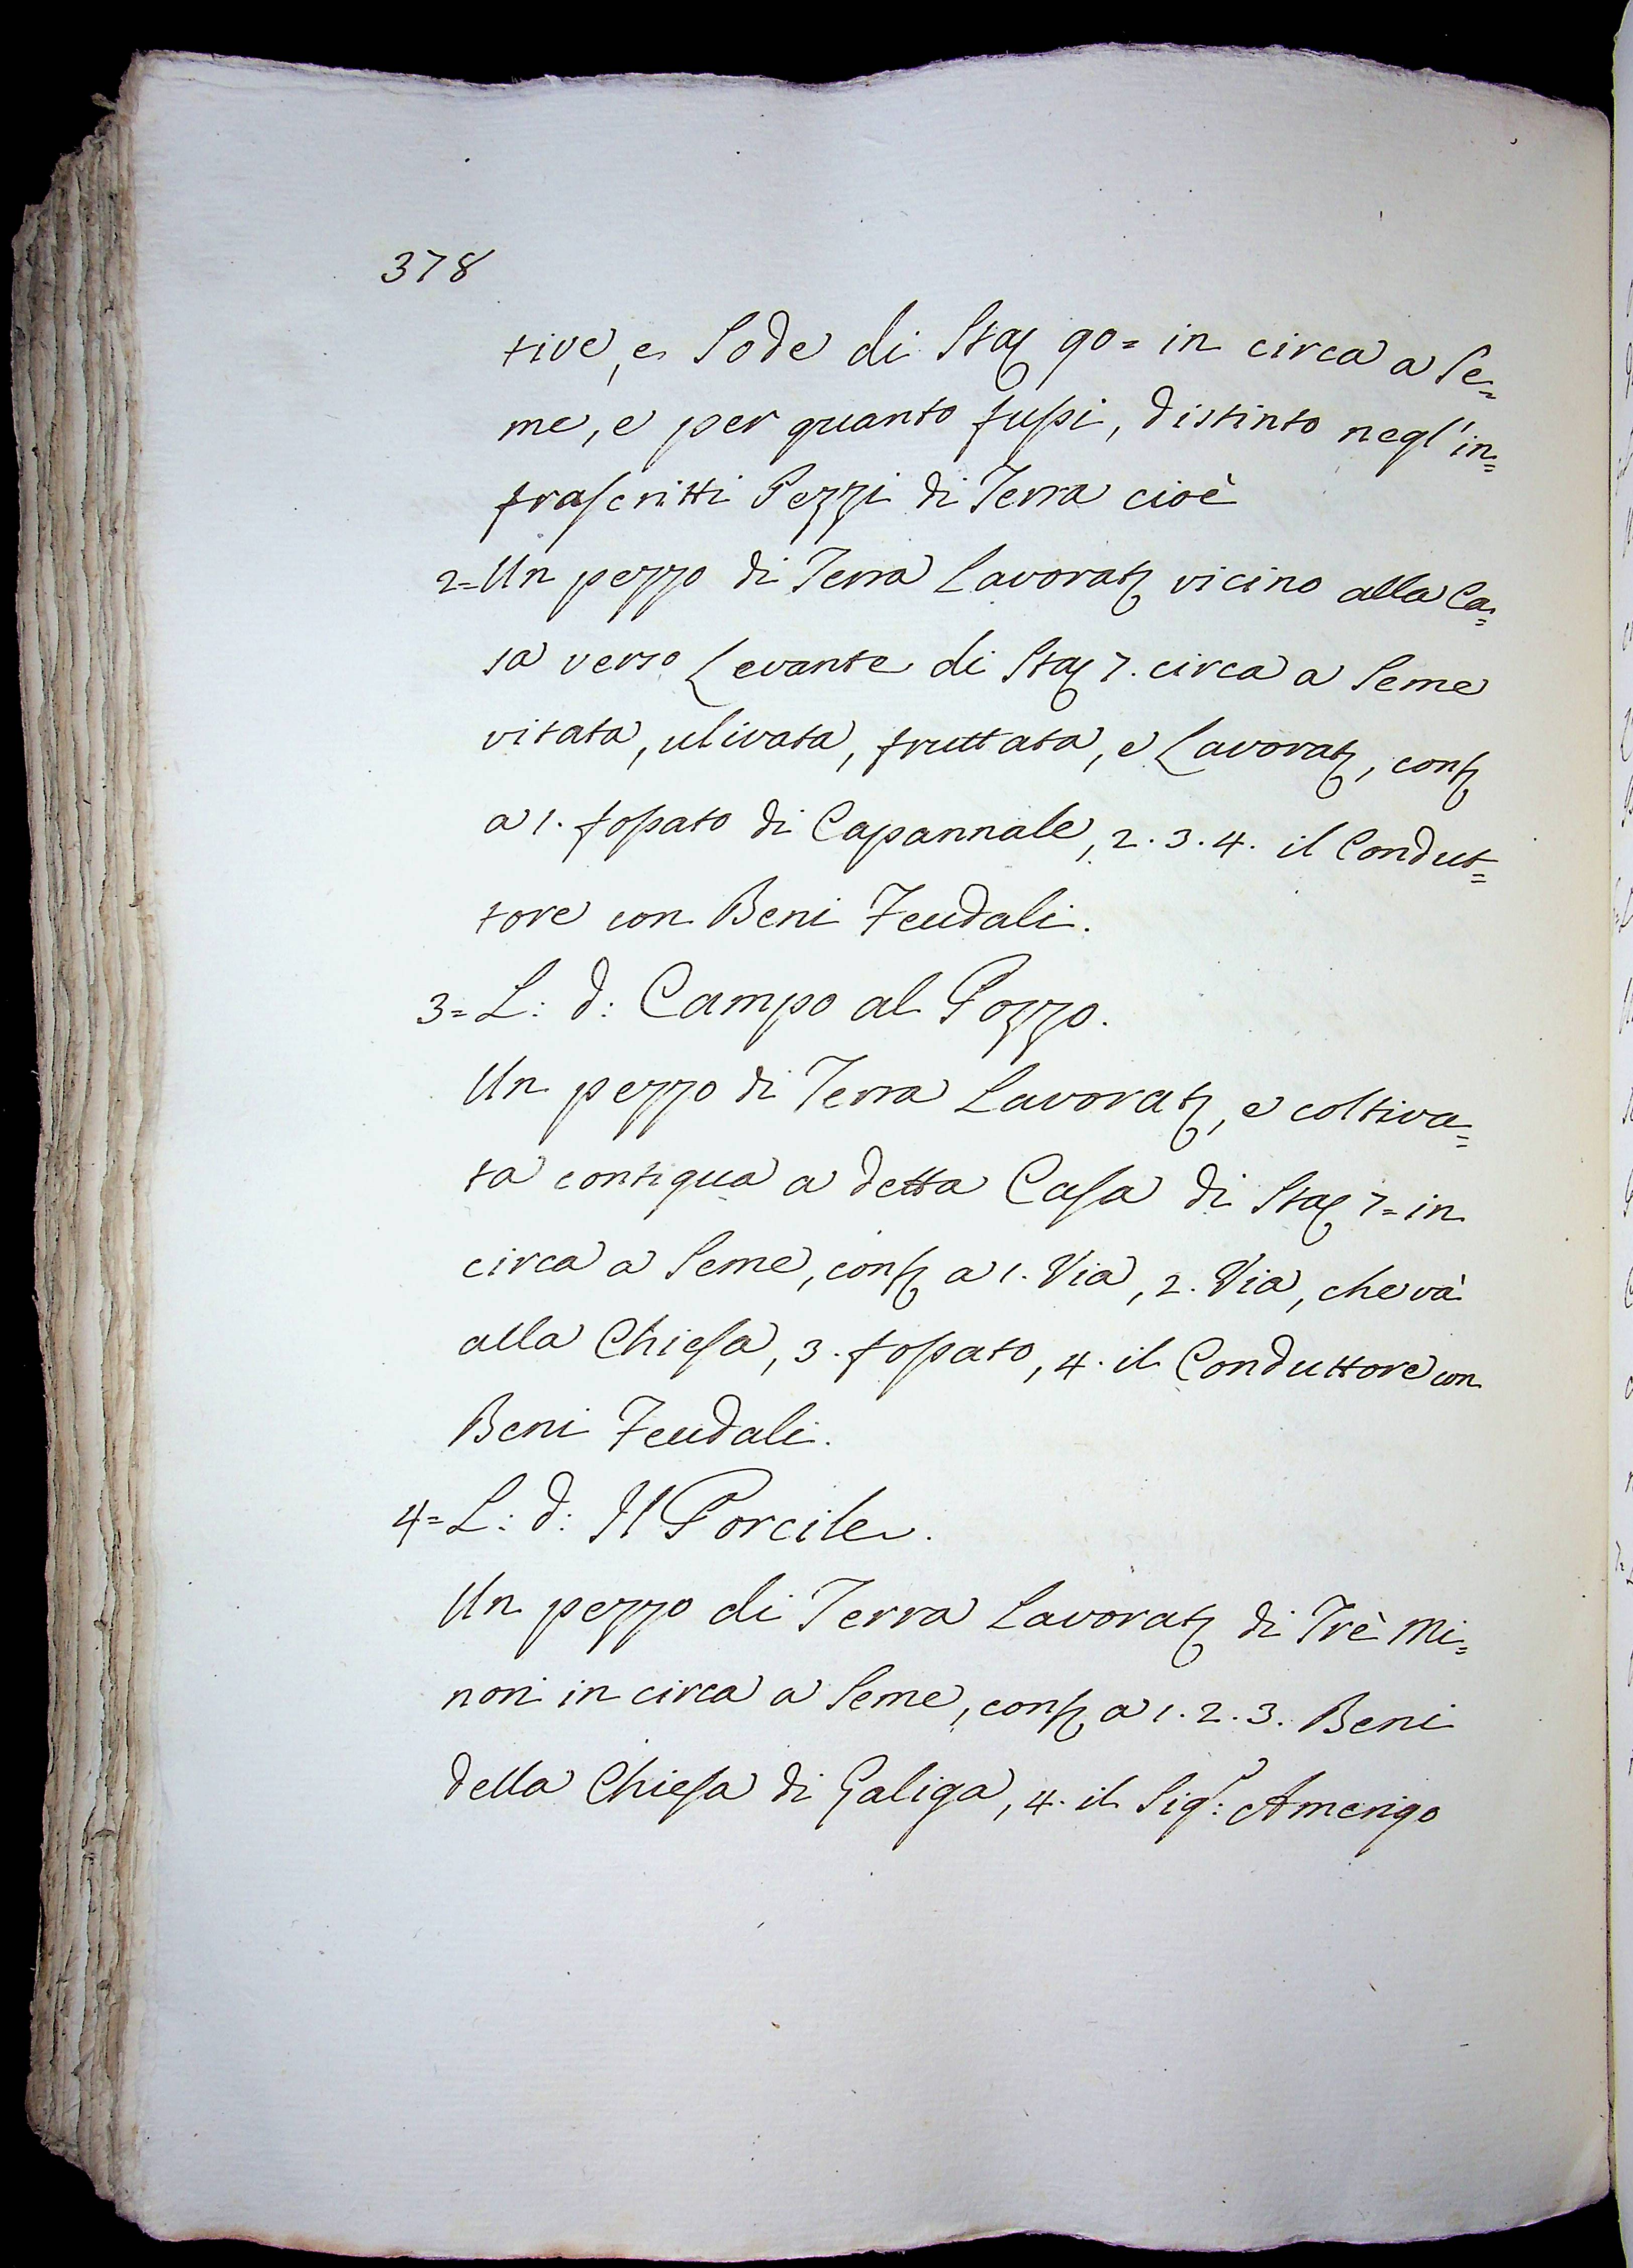 378
tive, e Sode di Sta 90= in circa a Se=
me, e per quanto fussi, distinto negl'in=
frascritti Pezzi di Terra cioè
2= Un pezzo di Terra Lavorat vicino alla Ca=
sa verso Levante di Sta 7. circa a Seme
vitata, ulivata, fruttata, e Lavorat, conf
a 1. fossato di Capannale, 2. 3. 4. il Condut=
tore con Beni Feudali.
3= L: d: Campo al Pozzo.
Un pezzo di Terra Lavorat, e coltiva=
ta contigua a detta Casa di Sta 7= in
circa a Seme, conf a 1. Via, 2. Via, che và
alla Chiesa, 3. fossato, 4. il Conduttore con
Beni Feudali.
4= L: d: Il Porcile.
Un pezzo di Terra Lavorat di Trè Mi=
nori in circa a Seme, conf a 1. 2. 3. Beni
della Chiesa di Galiga, 4. il Sig.r: Amerigo